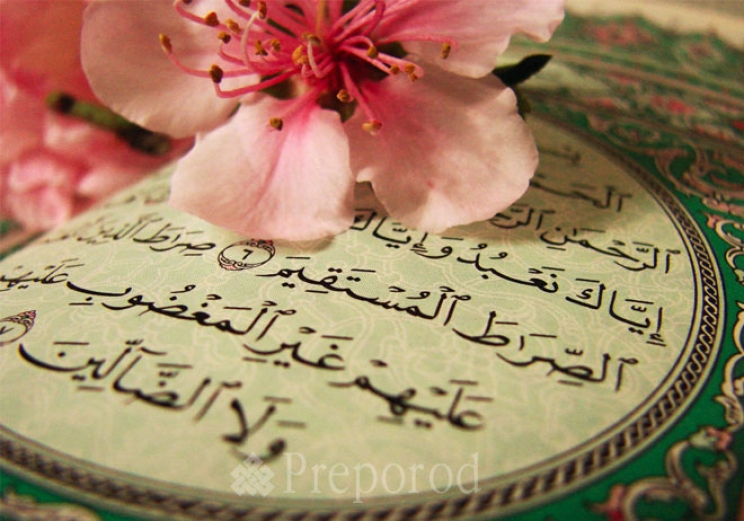 ٱلرَّحْمَٰنِ
إِيَّاكَ نَعْبُدُ وَإِيَّاكَ
ٱلصِّرَاطَ ٱلْمُسْتَقِيمَ ٦ صِرَاطَ ٱلَّذِينَ
عَلَيْهِمْ غَيْرِ ٱلْمَغْضُوبِ عَلَيْهِمْ
وَلَا ٱلضَّآلِّينَ ٧
Preporod